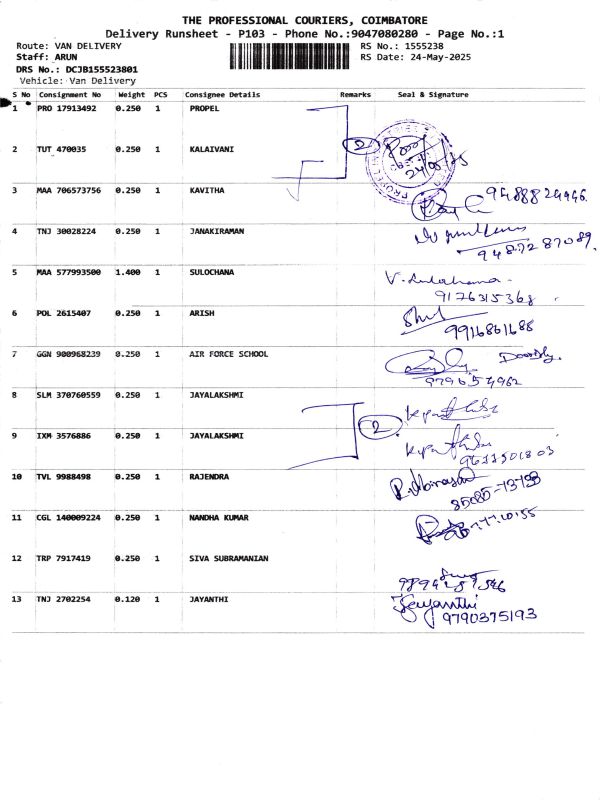 THE PROFESSIONAL COURIERS, COIMBATORE
Delivery Runsheet - P103 - Phone No.:9047080280 - Page No.:1
Route: VAN DELIVERY RS No.: 1555238
Staff: ARUN RS Date: 24-May-2025
DRS No.: DCJB155523801
Vehicle: Van Delivery
S No Consignment No Weight PCS Consignee Details Remarks Seal & Signature
1 PRO 17913492 0.250 1 PROPEL
2 TUT 470035 0.250 1 KALAIVANI 2
3 MAA 706573756 0.250 1 KAVITHA
4 TNJ 30028224 0.250 1 JANAKIRAMAN
5 MAA 577993500 1.400 1 SULOCHANA V. Sulochana
9176315368
6 POL 2615407 0.250 1 ARISH
9916861688
7 GGN 900968239 0.250 1 AIR FORCE SCHOOL
8 SLM 370760559 0.250 1 JAYALAKSHMI
2
9 IXM 3576886 0.250 1 JAYALAKSHMI
10 TVL 9988498 0.250 1 RAJENDRA
11 CGL 140009224 0.250 1 NANDHA KUMAR
12 TRP 7917419 0.250 1 SIVA SUBRAMANIAN
13 TNJ 2702254 0.120 1 JAYANTHI Jeyanthi
9790375193